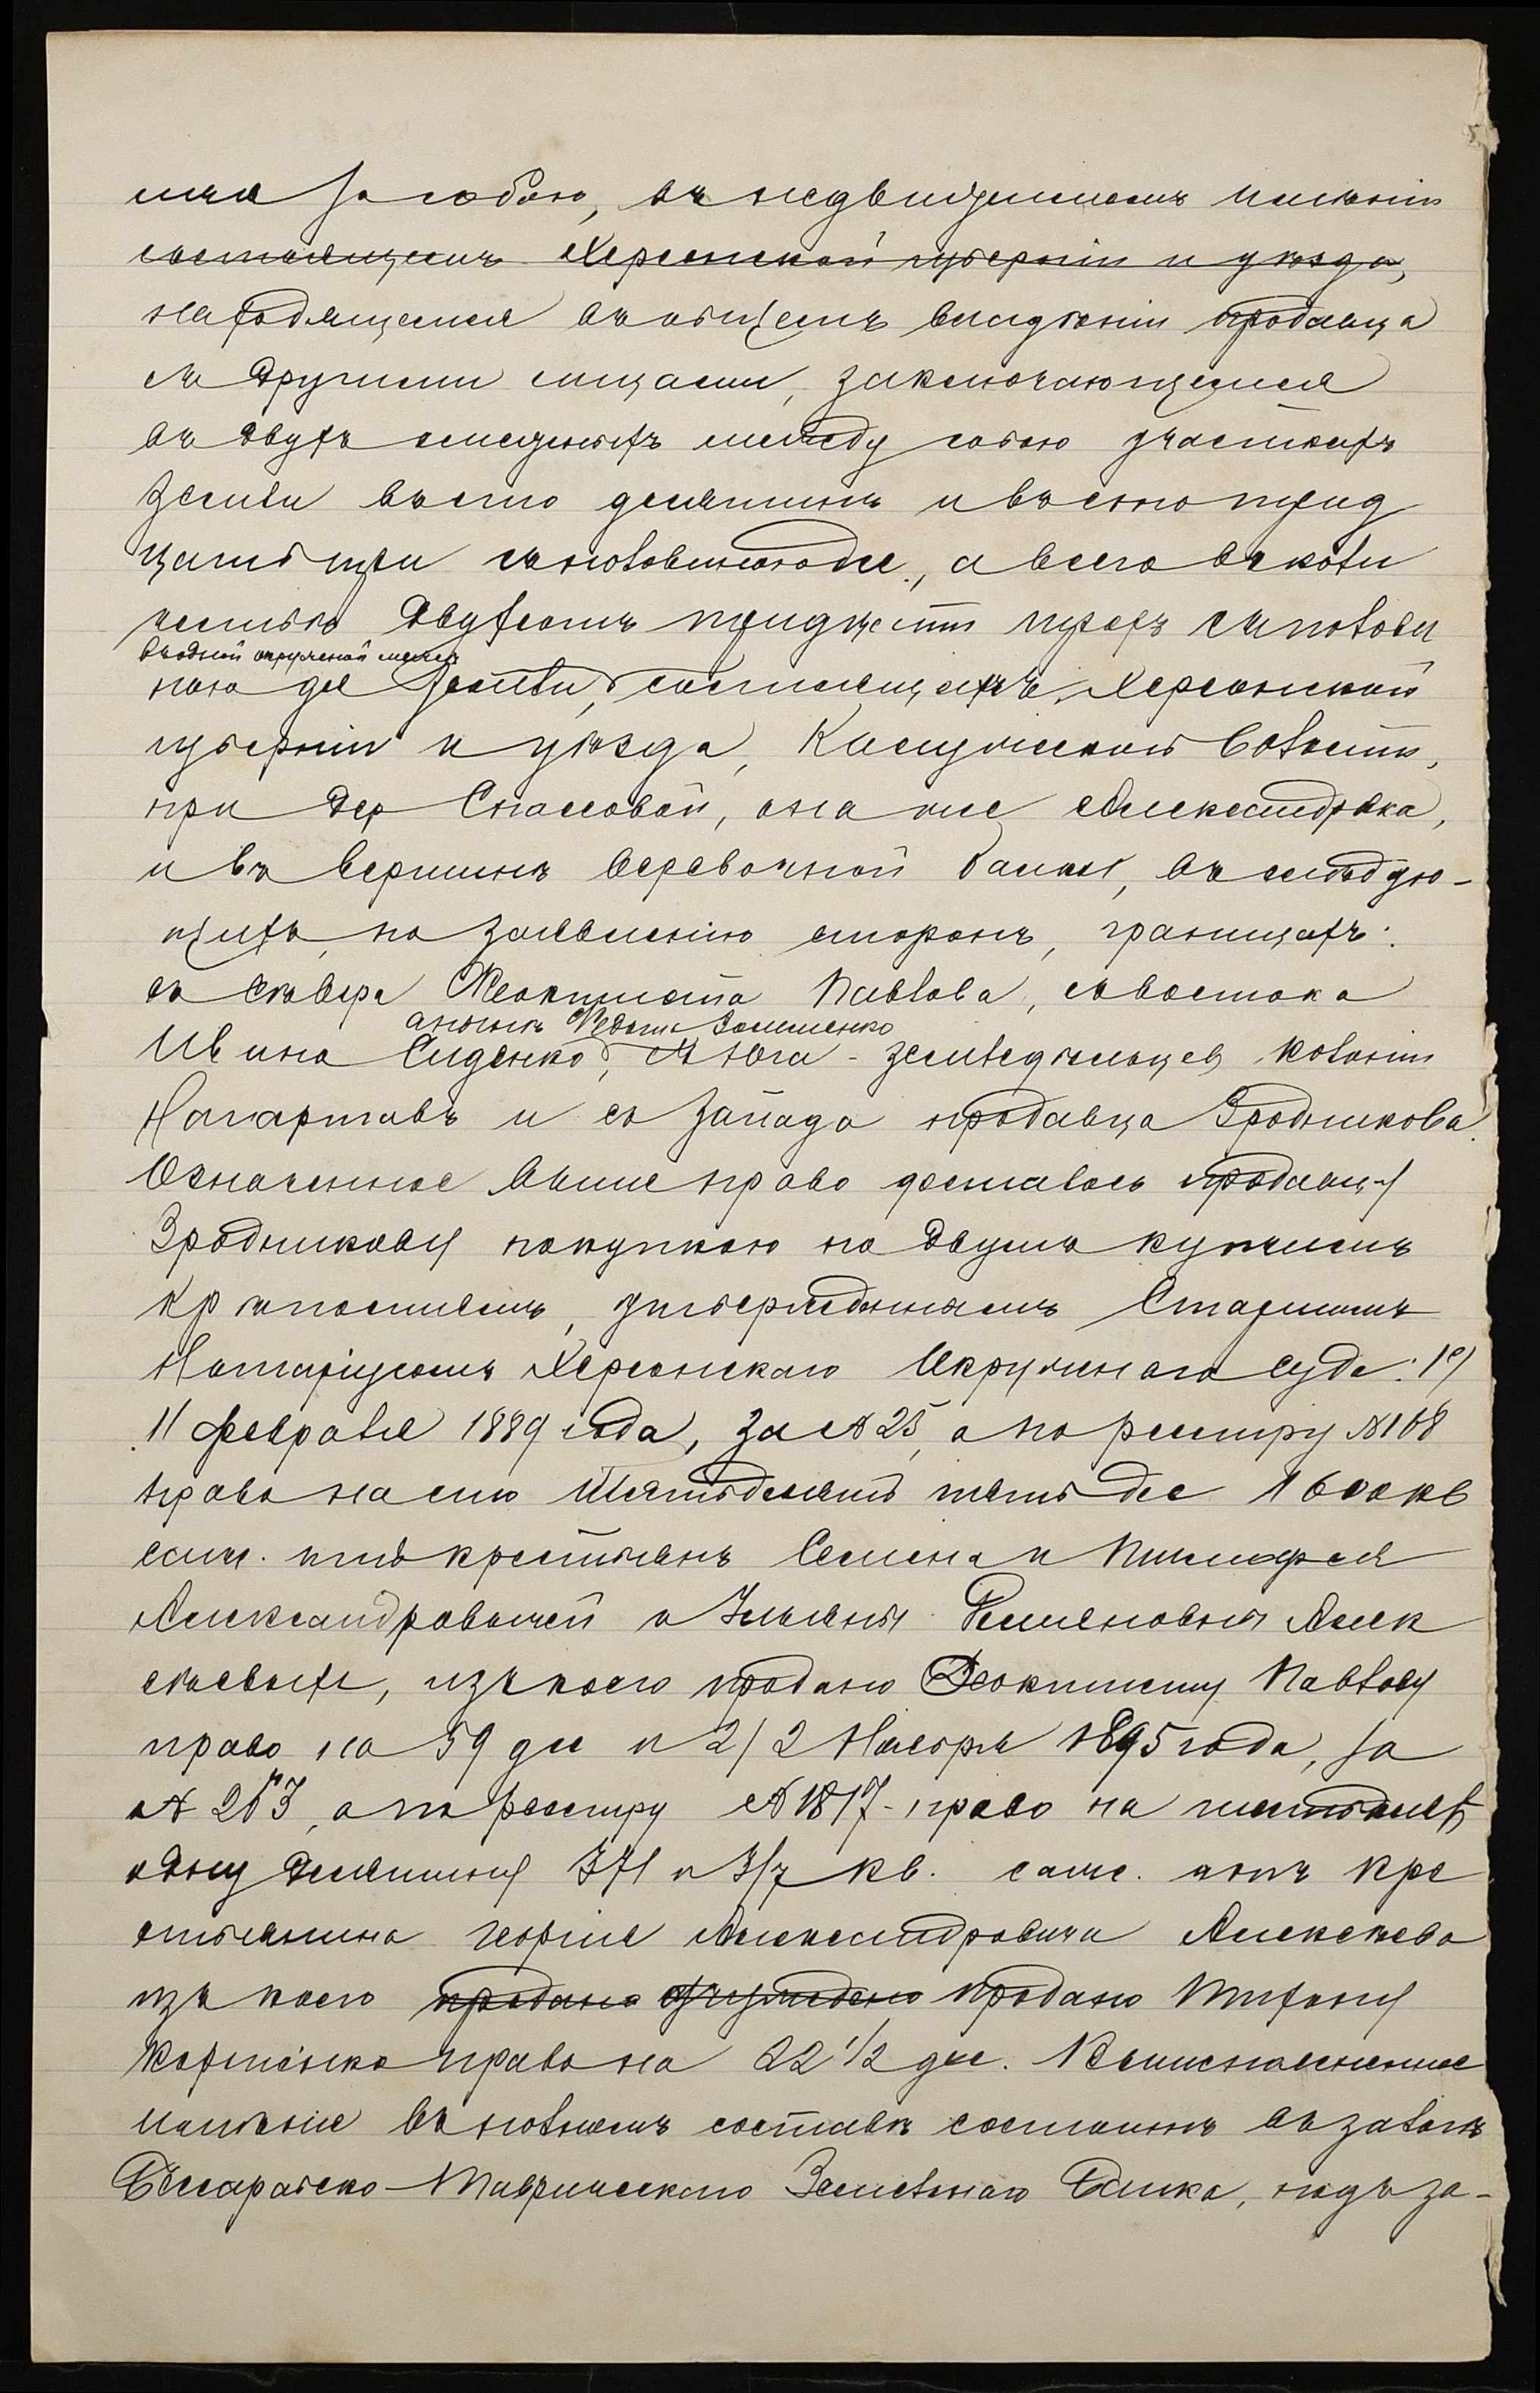 ми за собою, въ недвижимомъ имѣніи
состоящемъ Херсонской губерніи и уѣзда,
находящемся въ общемъ владѣніи продавца
съ другими лицами, заключающемся
въ двухъ смежныхъ между собою участкахъ
земли въ сто десятинъ и въ сто трид
цать три съ половиною дес., а всего въ коли
чествѣ двухсотъ тридцати трехъ съ полови
въ одной окружной межѣ
ною дес земли, состоящихъ Херсонской
губерніи и уѣзда, волости,
при дер Спасовой, она же Александровка,
и въ вершинѣ Веревочной балки, въ слѣдую-
щихъ по заявленію сторонъ, границахъ:
съ Сѣвера Феоктиста Павлова, съ востока
а нынѣ Федота
Ивана Сиденко, съ Юга - земледѣльцев колоніи
Нагартавъ и съ Запада продавца Зродникова.
Означенное выше право досталось продавцу
Зродникову покупкою по двумъ купчимъ
крѣпостямъ, утвержденнымъ Старшимъ
Нотаріусомъ Херсонскаго Окружнаго Суда: 1)
11 февраля 1889 года, за № 25, а по реестру № 168
право на сто шестьдесятъ пять дес 1600 кв
саж. отъ крестьянъ Семена и Тимофея
Александровичей и Ульяны Семеновны Алек
сѣевыхъ, изъ коего продано Феоктисту Павлову
право на 59 дес и 2) 2 Ноября 1895 года, за
№ 253, а по реестру № 1817 - право на шестьдесят
одну десятину 371 и 3/7 кв. саж. отъ кре
стьянина Георгія Александровича Алексѣева
изъ коего продано продано Тихону
право на 22 1/2 дес. Вышеозначенное
имѣніе въ полномъ составѣ состоитъ въ залогѣ
Бессарабско-Таврическаго Земельнаго Банка, подъ за-